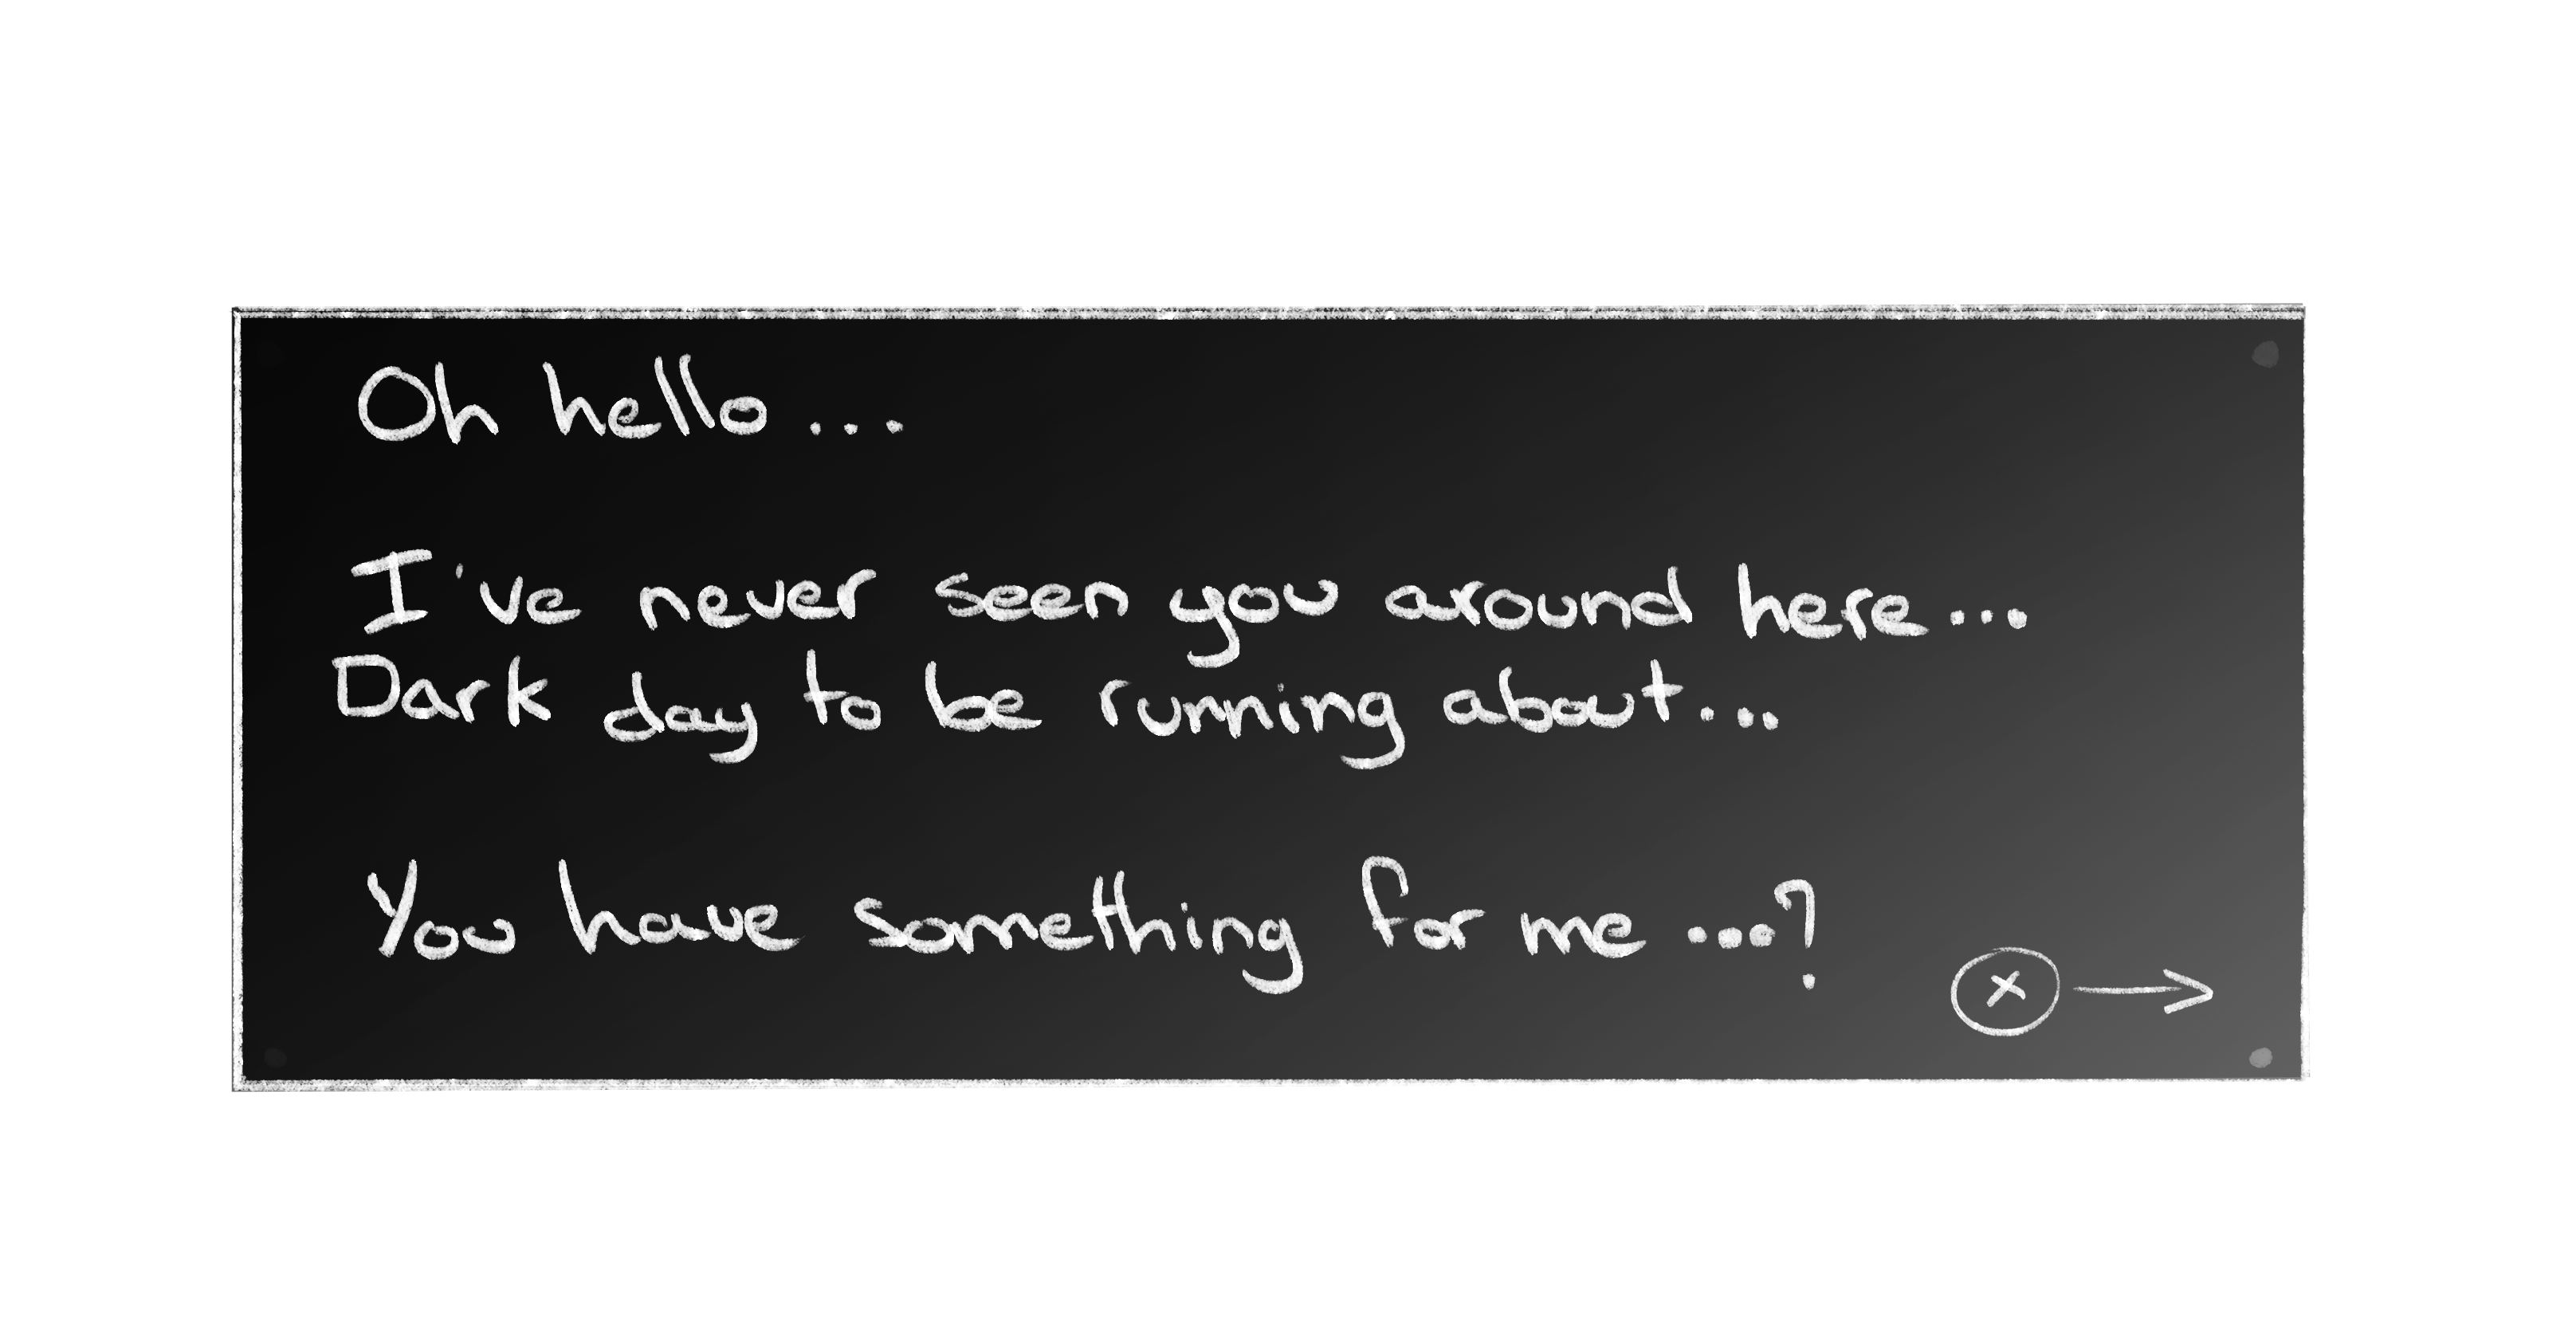 Oh hello...
I've never seen you around here...
Dark day to be running about...
You have something for me ...?
X